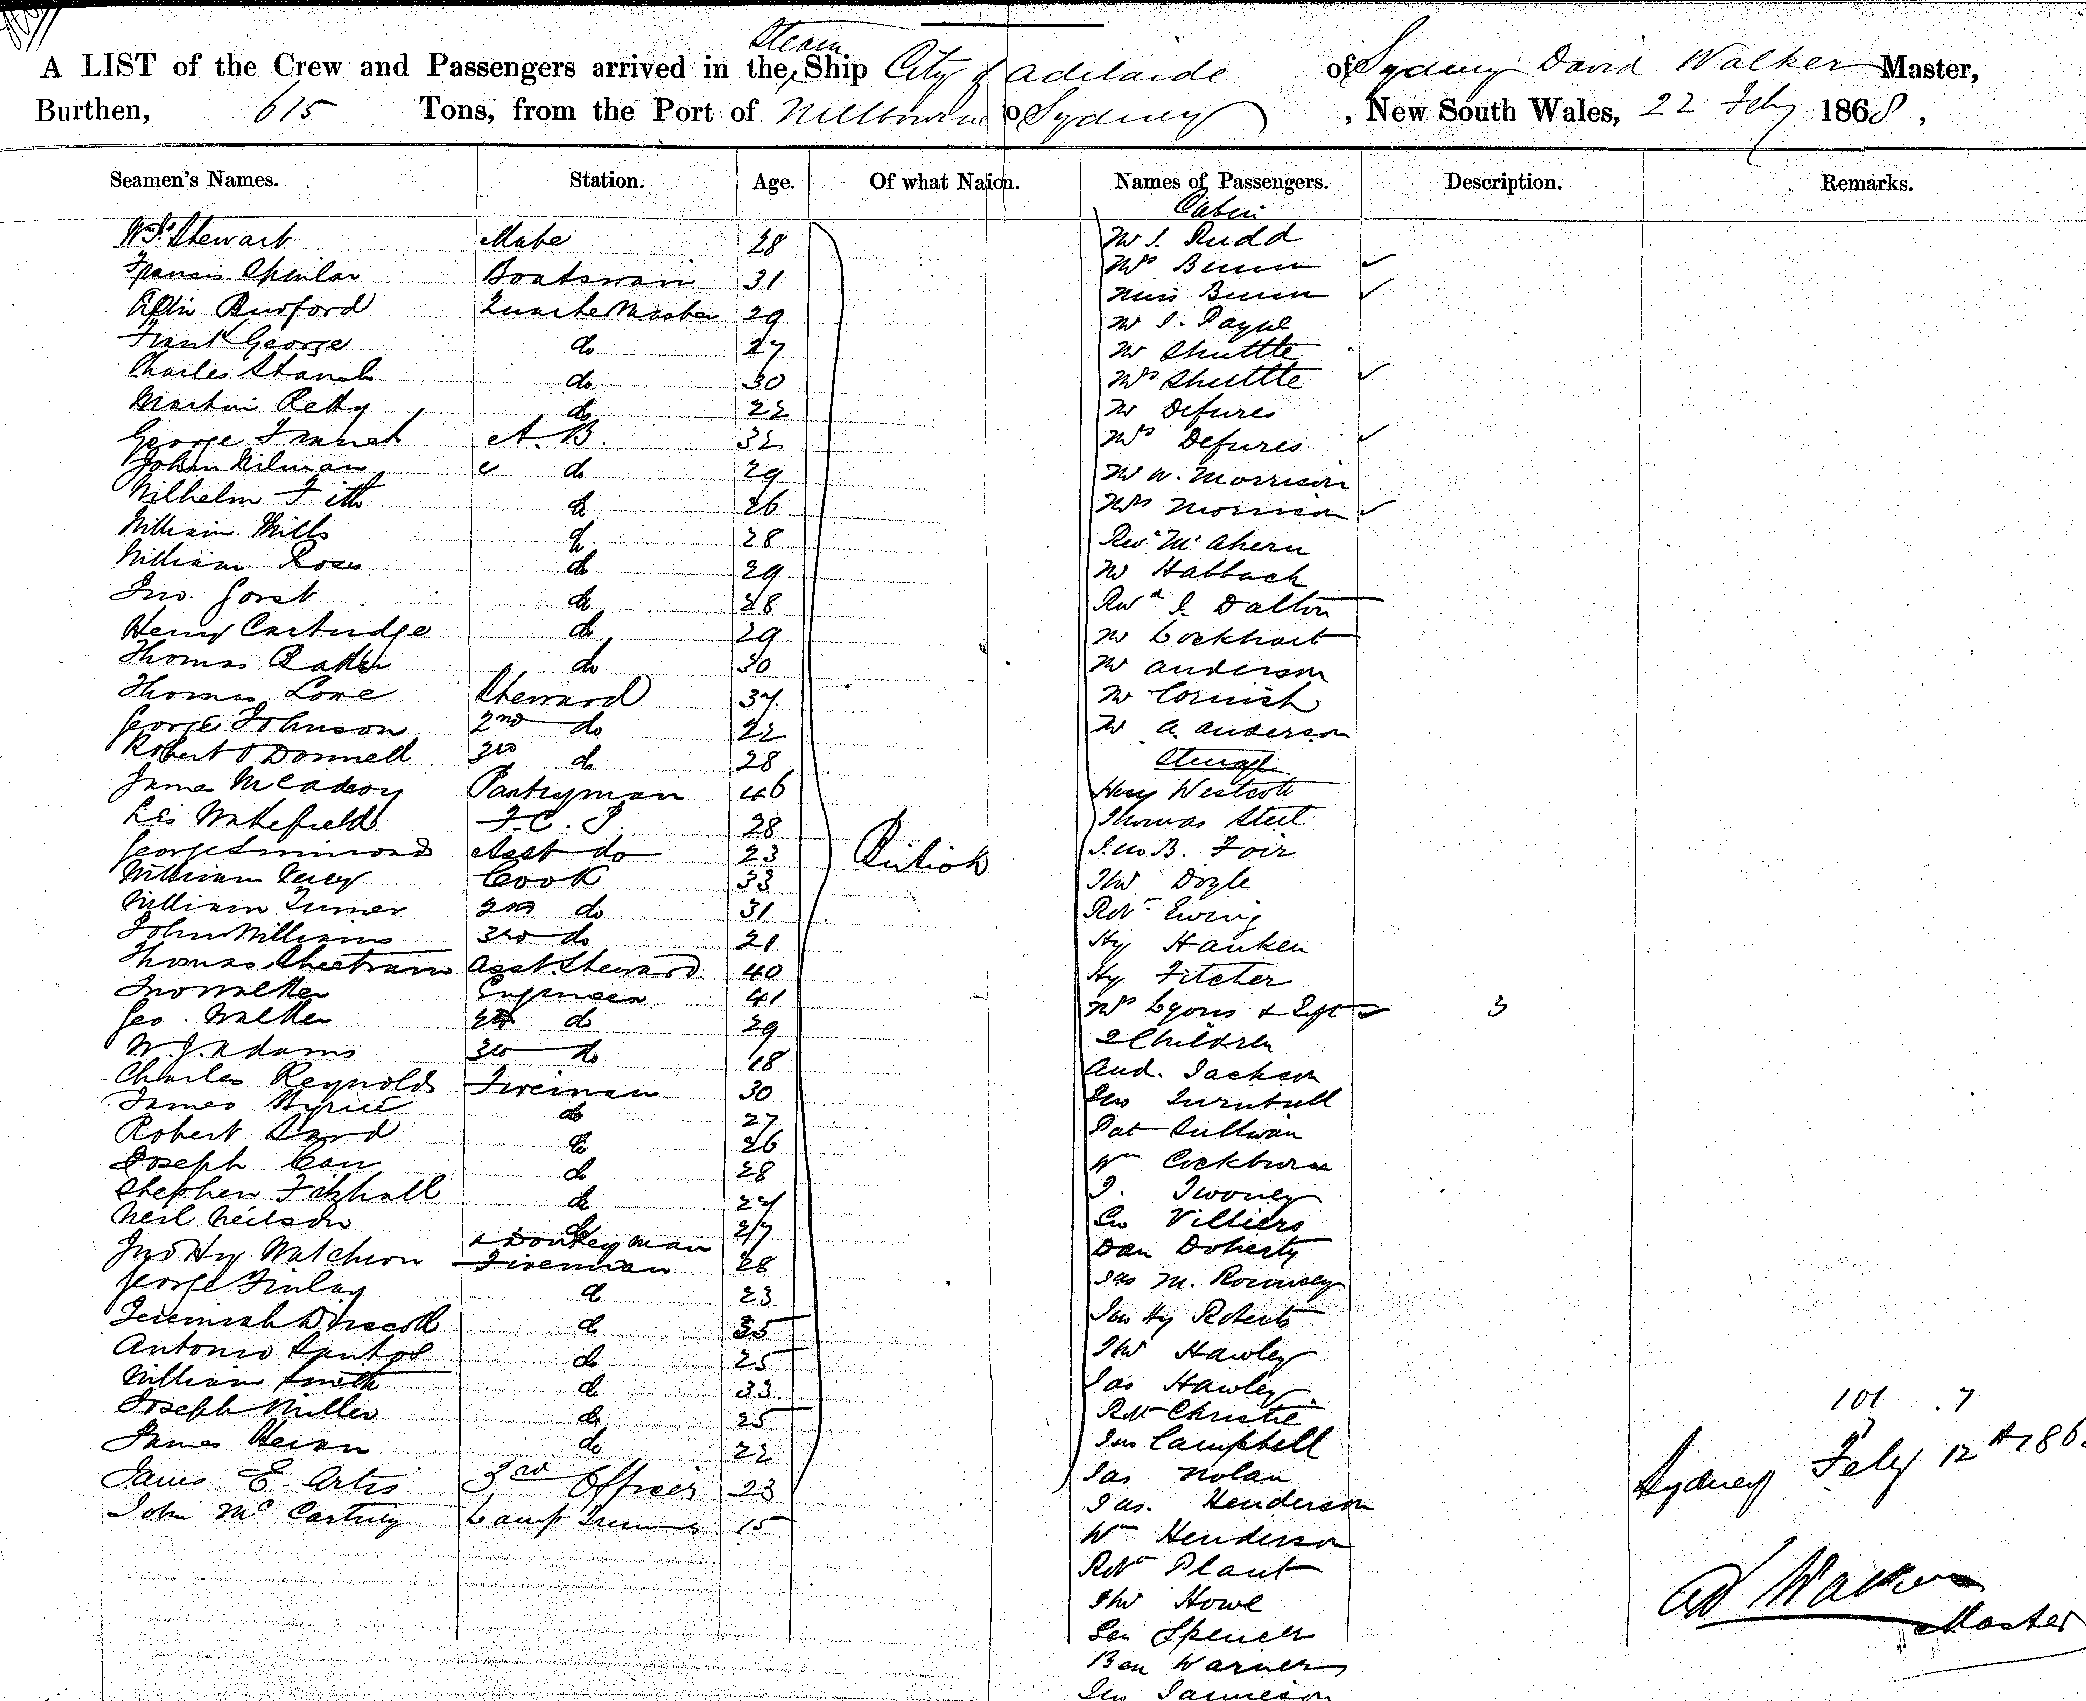 A LIST of the Crew and Passengers arrived in the Steam Ship City of Adelaide of Sydney David Walker Master,
Burthen, 615 Tons, from the Port of Melbourne to Sydney, New South Wales, 22 Feby 1868,
Seamen's Names. Station. Age. Of what Naion. Names of Passengers. Description. Remarks.
Cabin
Stewart Mate 28 Mr J. Rudd
Francis Boatswain 31 Mrs Bunn
Burford Quarter Master 29 Miss Bunn
Frank George do 27 Mr J. Payne
Charles do 30 Mr Shuttle
Martin Retty do 22 Mrs Shuttle
George A.B. 32 Mr Defures
John do 29 Mrs Defures
Wilhelm do 26 Mr W. Morrison
William Mills do 28 Mrs Morrison
William Ross do 29 Revd Mr Ahern
Jno. Gorst do 28 Mr Habbach
Henry Cartridge do 29 Revd J. Dalton
Thomas Baker do 30 Mr Lockhart
Thomas Lowe Steward 37 Mr Anderson
George Johnson 2nd do 22 Mr Cornish
Robert O Donnell 3rd do 28 Mr A. Anderson
Steerage
James McCadroy Pantryman 46 Hery Westcott
Wakefield F.C.S. 28 Thomas Steel
George Simmonds Asst do 23 Jno B. Foir
British
William Cook 33 Tho Doyle
William Turner 2nd do 31 Robt Ewing
John Williams 3rd do 21 Hy Hanken
Thomas Asst Steward 40 Hy Fitcher
Jno Walker Engineer 41 Mrs Lyons & 3
Geo. Walker 2nd do 29 2 Children
W. J. Adams 3rd do 18 And. Jackson
Charles Reynolds Fireman 30 Geo Turnbull
James Byrne do 27 Pat Sullivan
Robert do 26 Wm Cockburn
Joseph do 28 J. Twomey
Stephen Fitzhall do 27 Geo Villiers
Neil Neilson do 27 Dan Doherty
& Donkeyman
Jno Hy Watchion Fireman 28 Jas M. Romsey
George Finlay do 23 Jno Hy Roberts
Jeremiah Driscoll do 35 Tho Hawley
Antonio Santos do 25 Jas Hawley
William Smith do 33 Robt Christie
Joseph Miller do 25 Jno Campbell
James do 22 Jas Nolan
James E. Artis 3rd Officer 23 Jas. Henderson
John McCartney Lamp Trimmer 15 Wm Henderson
Robt Plant
Tho Howe
Geo Spencer
Ben Warner
Jno Jamieson
101 . 7
Sydney Feby 12th 186
Walker
Master